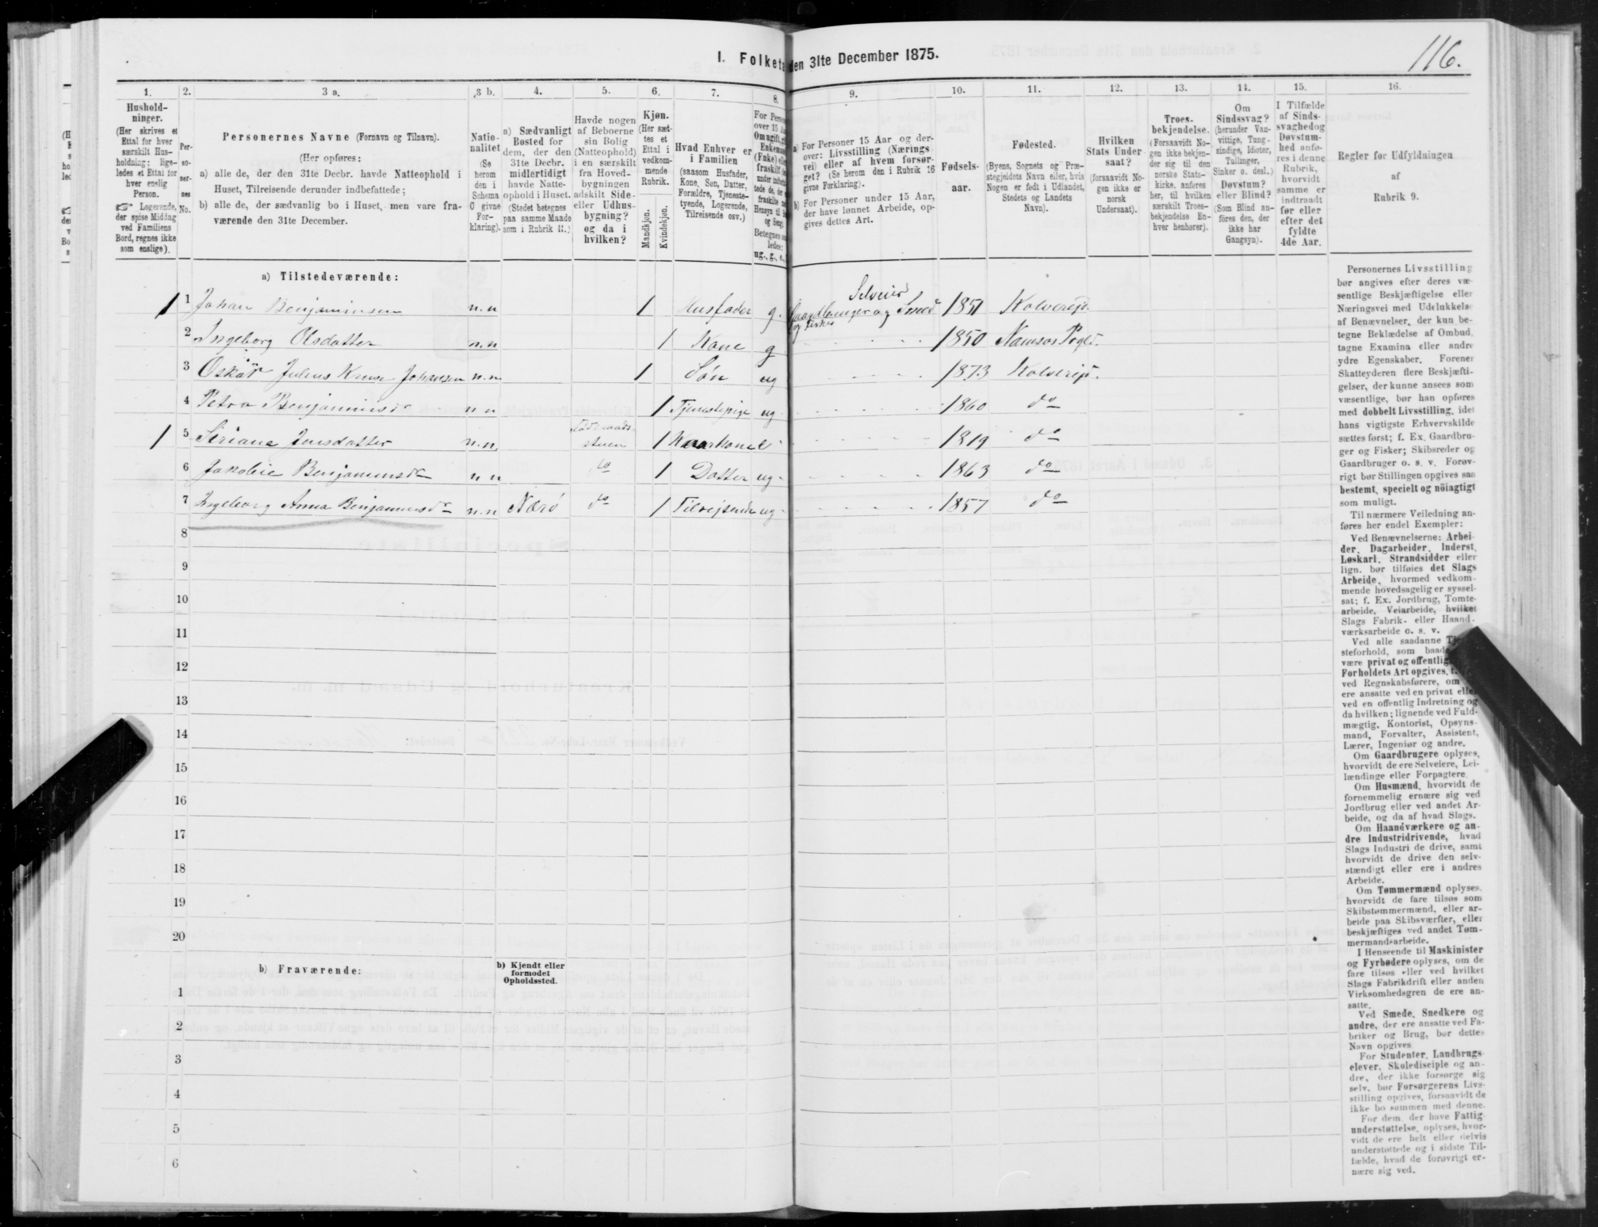 116.
I. Folket
den 31te December 1875.
1. 2. 3 a. 3 b. 4. 5. 6. 7. 8. 9. 10. 11. 12. 13. 14. 15. 16.
Hushold-
ninger.
(Her skrives et
Ettal for hver
særskilt Hus-
holdning; lige-
ledes et Ettal for
hver enslig
Person.
☞ Logerende,
der spise Middag
ved Familiens
Bord, regnes ikke
som enslige).
Per-
so-
ner-
nes
No.
Personernes Navne (Fornavn og Tilnavn).
(Her opføres:
a) alle de, der den 31te Decbr. havde Natteophold i
Huset, Tilreisende derunder indbefattede;
b) alle de, der sædvanlig bo i Huset, men vare fra-
værende den 31te December.
Natio-
nalitet
(Se
herom
den i
Schema
C givne
For-
klaring).
a) Sædvanligt
Bosted for
dem, der den
31te Decbr.
midlertidigt
havde Natte-
ophold i Huset.
(Stedet betegnes
paa samme Maade
som i Rubrik 11.)
Havde nogen
af Beboerne
sin Bolig
(Natteophold)
i en særskilt
fra Hoved-
bygningen
adskilt Side-
eller Udhus-
bygning?
og da i
hvilken?
Kjøn.
(Her sæt-
tes et
Ettal i
vedkom-
mende
Rubrik.
Mandkjøn.
Kvindekjøn.
Hvad Enhver er
i Familien
(saasom Husfader,
Kone, Søn, Datter,
Forældre, Tjeneste-
tyende, Logerende,
Tilreisende osv.)
a) For Personer 15 Aar og der-
over: Livsstilling (Nærings-
vei) eller af hvem forsør-
get? (Se herom den i Rubrik 16
givne Førklaring).
b) For Personer under 15 Aar,
der have lønnet Arbeide, op-
gives dettes Art.
Fødsels-
aar.
Fødested.
(Byens, Sognets og Præ-
stegjeldets Navn eller, hvis
Nogen er født i Udlandet,
Stedets og Landets
Navn).
Hvilken
Stats Under
saat?
(forsaavidt No-
gen ikke er
norsk
Undersaat).
Troes-
bekjendelse.
(Forsaavidt No-
gen ikke bekjen-
der sig til den
norske Stats-
kirke, anføres
her, til hvilken
særskilt Troes-
bekjendelse En-
hver henhører).
Om
Sindssvag?
(herunder Van-
vittige, Tung-
sindige, Idioter,
Tullinger,
Sinker o. desl.)
Døvstum?
eller Blind?
(Som Blind an-
føres den, der
ikke har
Gangsyn).
I Tilfælde
af Sinds-
svaghedog
Døvstum-
hed anfø-
res i denne
Rubrik,
hvorvidt
samme er
indtraadt
før eller
efter det
fyldte
4de Aar.
Regler før Udfyldningen
af
Rubrik 9.
a) Tilstedeværende:
1 1 Johan Benjaminsen n.n 1 Husfader g. Selveier Gaardbruger og Smed og Fisker 1851 Kolvereid.
2 Ingeborg Olsdatter n.n 1 Kone g 1850 Namsos
3 Oskar Julius Johansen n.n. 1 Søn ug 1873 Kolvereid.
4 Petra Benjaminsd n n 1 Tjenestepige ug 1860 do
1 5 Jensdatter n.n. 1 Kaarkone e 1819 do
6 Jakobie Benjaminsd n n do 1 Datter ug 1863 do
7 Ingeborg Anna Benjaminsd n.n Nærø do 1 Tilreisende ug 1857 do
8
9
10
11
12
13
14
15
16
17
18
19
20
b) Fraværende:
b) Kjendt eller
formodet
Opholdssted.
1
2
3
4
5
6
Personernes Livsstilling
bør angives efter deres væ-
sentlige Beskjæftigelse eller
Næringsvei med Udelukkels
af Benævnelser, der kun be-
tegne Beklædelse af Ombud,
tagne Examina eller andre
ydre Egenskaber. Forener
Skatteyderen flere Beskjæfti-
gelser, der kunne ansees som
væsentlige, bør han opføres
med dobbelt Livsstilling, idet
hans vigtigste Erhvervskilde
sættes først; f. Ex. Gaardbru-
ger og Fisker; Skibsreder og
Gaardbruger o. s. v. Forøv-
rigt bør Stillingen opgives saa
bestemt, specielt og nöiagtigt
som muligt.
Til nærmere Veiledning an-
føres her endel Exempler:
Ved Benævnelserne: Arbei-
der, Dagarbeider, Inderst,
Løskarl, Strandsidder eller
lign. bør tilføies det Slags
Arbeide, hvormed vedkom-
mende hovedsagelig er syssel-
sat; f. Ex. Jordbrug, Tomte-
arbeide, Veiarbeide, hvilket
Slags Fabrik- eller Haand-
værksarbeide o. s. v.
Ved alle saadanne
steforhold, som
være privat og
Forholdets Art opgives,
ved Regnskabsførere, om
ere ansatte ved en privat eller
ved en offentlig Indretning og
da hvilken; lignende ved Fuld-
mægtig, Kontorist, Opsyns-
mand, Forvalter, Assistent,
Lærer, Ingeniør og andre.
Om Gaardbrugere oplyses,
hvorvidt de ere Selveiere, Lei-
lændinge eller Forpagtere.
Om Husmænd, hvorvidt de
fornemmelig ernære sig ved
Jordbrug eller ved andet Ar-
beide, og da af hvad Slags.
Om Haandværkere og an-
dre Industridrivende, hvad
Slags Industri de drive, samt
hvorvidt de drive den selv-
stændigt eller ere i andres
Arbeide.
Om Tømmermænd oplyses,
hvorvidt de fare tilsøs som
Skibstømmermænd, eller ar-
beide paa Skibsværfter, eller
beskjæftiges ved andet Tøm-
mermandsarbeide.
I Henseende til Maskinister
og Fyrbødere oplyses, om de
fare tilsøs eller ved hvilket
Slags Fabrikdrift eller anden
Virksomhedsgren de ere an-
satte.
Ved Smede, Snedkere og
andre, der ere ansatte ved Fa-
briker og Brug, bør dettes
Navn opgives
For Studenter, Landbrugs-
elever, Skoledisciple og an-
dre, der ikke forsørge sig
selv, bør Forsørgerens Livs-
stilling opgives, forsaavidt de
ikke bo sammen med denne.
For dem, der have Fattig-
understøttelse, oplyses, hvor-
vidt de ere helt eller delvis
understøttede og i sidste Til-
fælde, hvad de forøvrigt er-
nære sig ved.